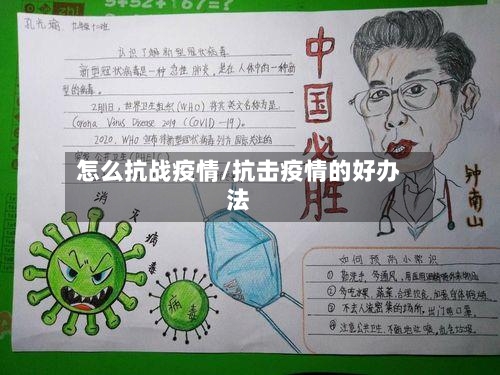 孔尤瑜 九年级十二班
认识了解新型冠状病毒
新型冠状病毒是一种急性肺炎，是在人体中的一种新
型的病毒。
2月11日，世界卫生组织(WHO)将其英文名称为是
Corona Virus Disease 2019 (COVID-19)。
2020，WHO宣布将新型冠状病毒列为国际关注的
公共卫生(PHEIC)
中国必胜
怎么抗战疫情/抗击疫情的好办
法
钟南山
消灭病毒
病毒
如何预防小常识
① 勤洗手，多通风，
② 多吃水果、蔬菜，合理饮食，加强身体锻炼
③ 不去人流密集的场所，出门戴口罩。
④ 注意公共卫生，不随地吐痰，